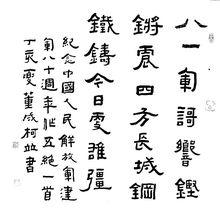 八一軍謌響鏗
鏘震四方長城鋼
鐵鑄今日更雄彊
紀念中國人民解放軍建
軍八十週年作五絕一首
丁亥夏董成柯並書